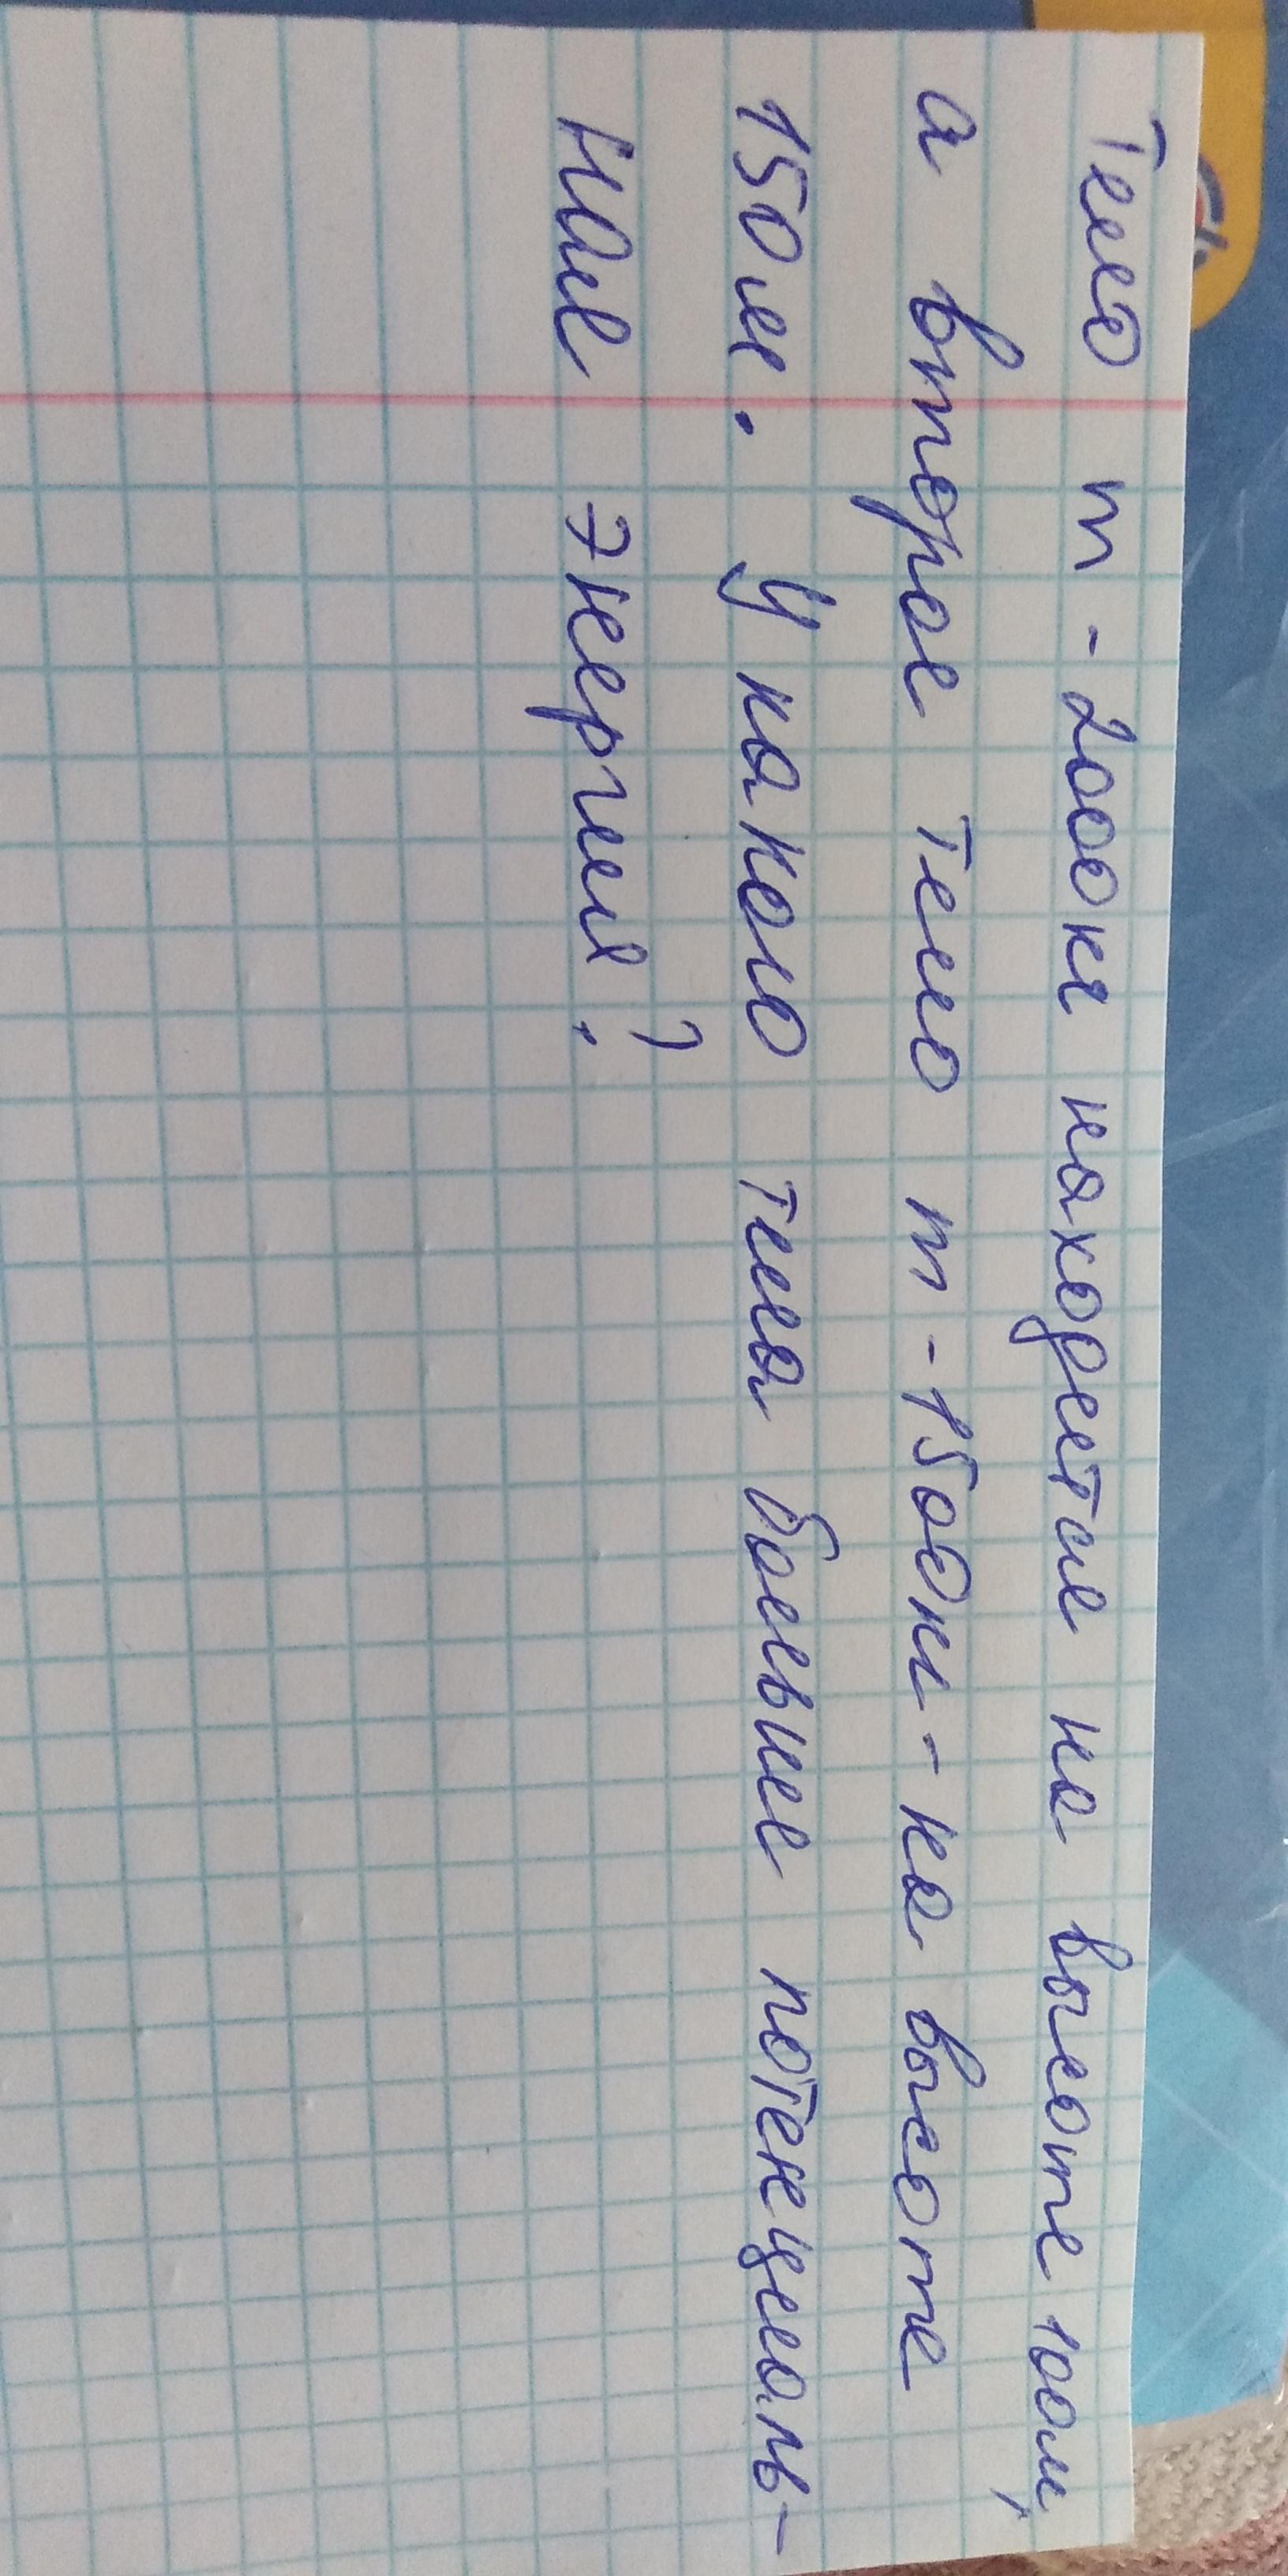 Тело m - 200 кг находится на высоте 100м,
а второе тело m - 150 кг - на высоте
150 м. У какого тела больше потенциаль-
ная энергия?